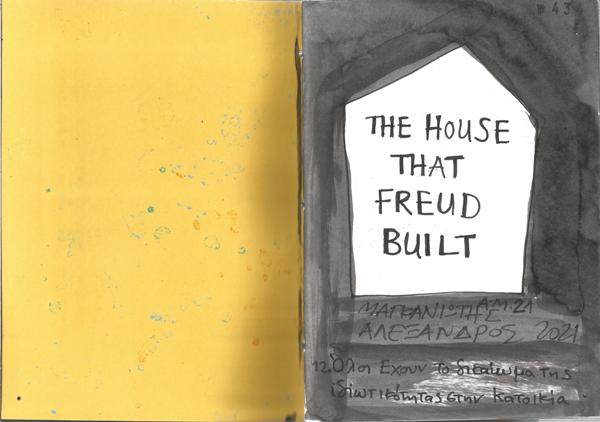 # 43
THE HOUSE
THAT
FREUD
BUILT
ΜΑΓΓΑΝΙΩΤΗΣ Α.Μ. 21
ΑΛΕΞΑΝΔΡΟΣ 2021
12. Όλοι Έχουν το δικαίωμα της
ιδιωτικότητας στην κατοικία